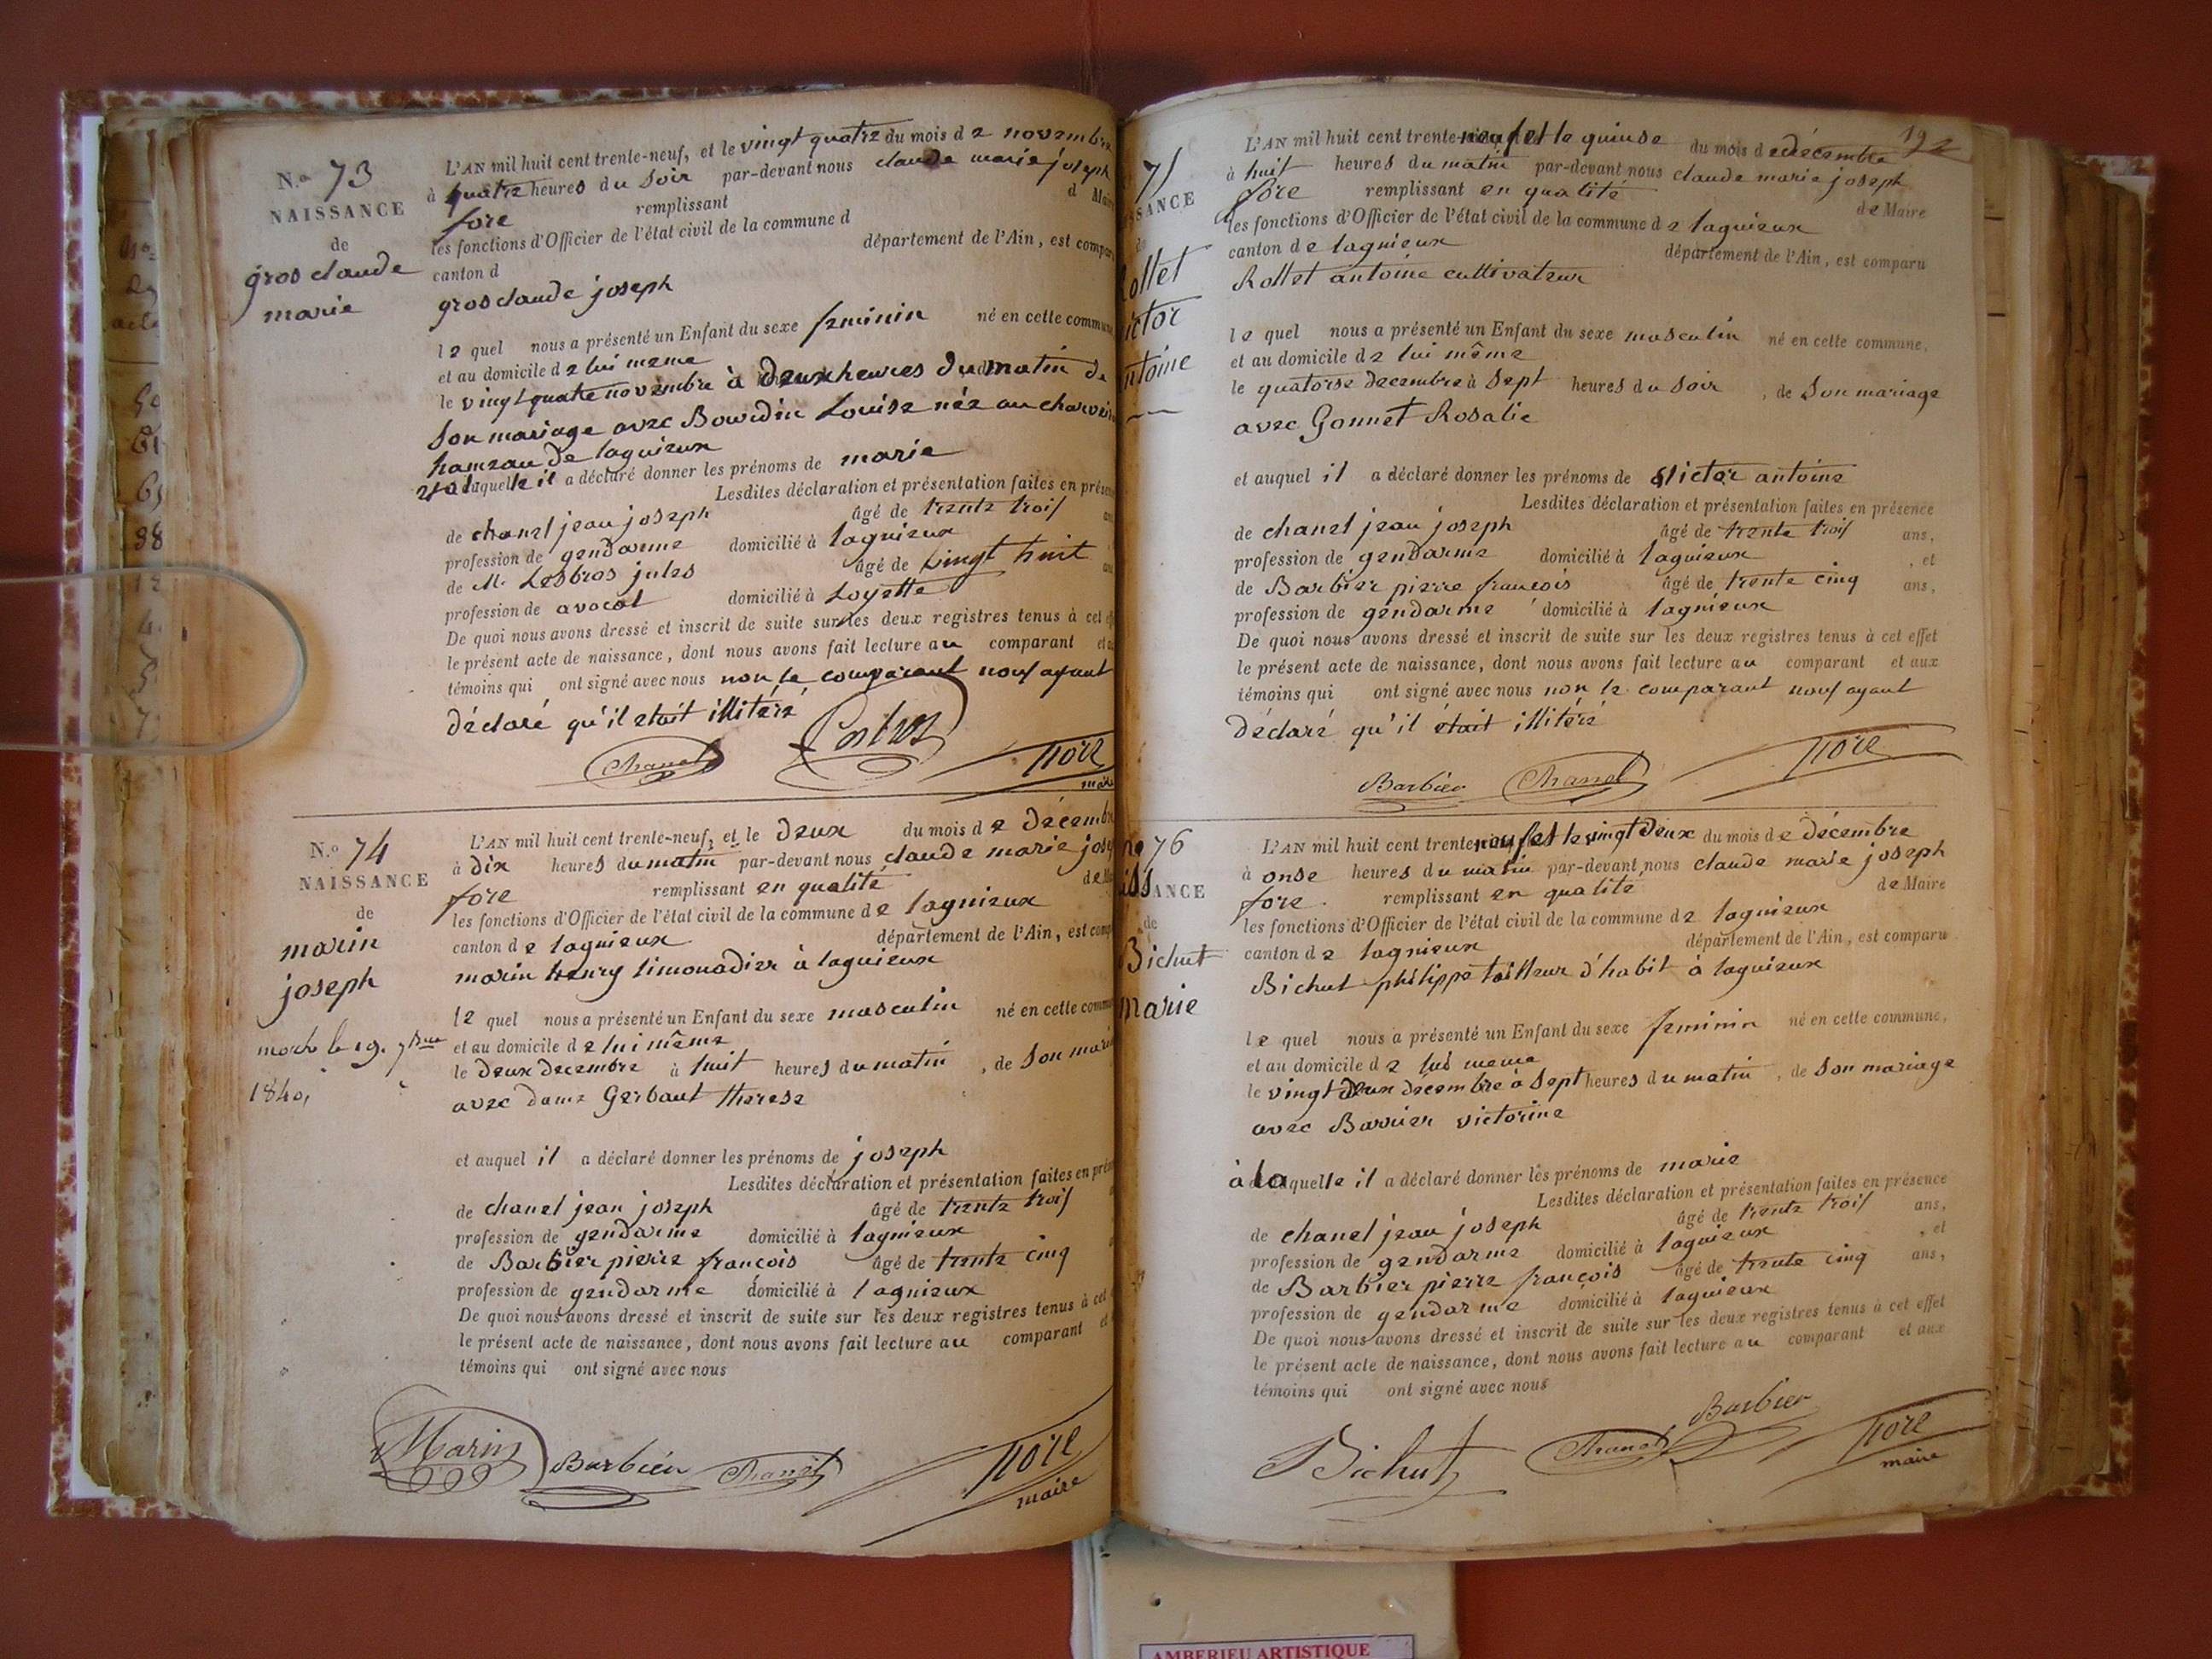 N.o 73
NAISSANCE
de
gros claude
marie
L'AN mil huit cent trente-neuf, et le vingt quatre du mois de novembre
à quatre heures du soir par-devant nous claude marie joseph
fore remplissant d Maire
les fonctions d'Officier de l'état civil de la commune d
canton d département de l'Ain, est comparu
gros claude joseph
le quel nous a présenté un Enfant du sexe feminin né en cette commune
et au domicile de lui meme
le vingt quatre novembre à deux heures du matin de
son mariage avec Bourdin Louise née au
hameau de lagnieux
et à laquelle il a déclaré donner les prénoms de marie
Lesdites déclaration et présentation faites en présence
de chanel jean joseph âgé de trente trois ans
profession de gendarme domicilié à lagnieux
de M. Lesbros jules âgé de vingt huit ans
profession de avocat domicilié à Loyette
De quoi nous avons dressé et inscrit de suite sur les deux registres tenus à cet effet
le présent acte de naissance, dont nous avons fait lecture au comparant et aux
témoins qui ont signé avec nous non le comparant nous ayant
déclaré qu'il était illitéré
Chanel Lesbros fore
maire
N.o 74
NAISSANCE
de
marin
joseph
mort le 19. 7bre
1840,
L'AN mil huit cent trente-neuf, et le deux du mois de décembre
à dix heures du matin par-devant nous claude marie joseph
fore remplissant en qualité de Maire
les fonctions d'Officier de l'état civil de la commune de lagnieux
canton de lagnieux département de l'Ain, est comparu
marin henry limonadier à lagnieux
le quel nous a présenté un Enfant du sexe masculin né en cette commune
et au domicile de lui même
le deux decembre à huit heures du matin, de son mariage
avec dame Gerbaut therese
et auquel il a déclaré donner les prénoms de joseph
Lesdites déclaration et présentation faites en présence
de chanel jean joseph âgé de trente trois
profession de gendarme domicilié à lagnieux
de Barbier pierre francois âgé de trente cinq
profession de gendarme domicilié à lagnieux
De quoi nous avons dressé et inscrit de suite sur les deux registres tenus à cet
le présent acte de naissance, dont nous avons fait lecture au comparant et
témoins qui ont signé avec nous
Marin Barbier Chanel fore
maire
192
75
SSANCE
de
Rollet
victor
antoine
L'AN mil huit cent trente-neuf et le quinse du mois de décembre
à huit heures du matin par-devant nous claude marie joseph
fore remplissant en qualité de Maire
les fonctions d'Officier de l'état civil de la commune de lagnieux
canton de lagnieux département de l'Ain, est comparu
Rollet antoine cultivateur
le quel nous a présenté un Enfant du sexe masculin né en cette commune,
et au domicile de lui même
le quatorse decembre à sept heures du soir, de son mariage
avec Gonnet Rosalie
et auquel il a déclaré donner les prénoms de victor antoine
Lesdites déclaration et présentation faites en présence
de chanel jean joseph âgé de trente trois ans,
profession de gendarme domicilié à lagnieux, et
de Barbier pierre francois âgé de trente cinq ans,
profession de gendarme domicilié à lagnieux
De quoi nous avons dressé et inscrit de suite sur les deux registres tenus à cet effet
le présent acte de naissance, dont nous avons fait lecture au comparant et aux
témoins qui ont signé avec nous non le comparant nous ayant
déclaré qu'il était illitéré
Barbier Chanel fore
no 76
ISSANCE
de
Bichut
marie
L'AN mil huit cent trente neuf et le vingt deux du mois de décembre
à onse heures du matin par-devant nous claude marie joseph
fore remplissant en qualité de Maire
les fonctions d'Officier de l'état civil de la commune de lagnieux
canton de lagnieux département de l'Ain, est comparu
Bichut philippe tailleur d'habit à lagnieux
le quel nous a présenté un Enfant du sexe feminin né en cette commune,
et au domicile de lui meme
le vingt deux decembre à sept heures du matin, de son mariage
avec Barrier victorine
à laquelle il a déclaré donner les prénoms de marie
Lesdites déclaration et présentation faites en présence
de chanel jean joseph âgé de trente trois ans,
profession de gendarme domicilié à lagnieux, et
de Barbier pierre françois âgé de trente cinq ans,
profession de gendarme domicilié à lagnieux
De quoi nous avons dressé et inscrit de suite sur les deux registres tenus à cet effet
le présent acte de naissance, dont nous avons fait lecture au comparant et aux
témoins qui ont signé avec nous
Bichut Chanel Barbier fore
maire
AMBERIEU ARTISTIQUE